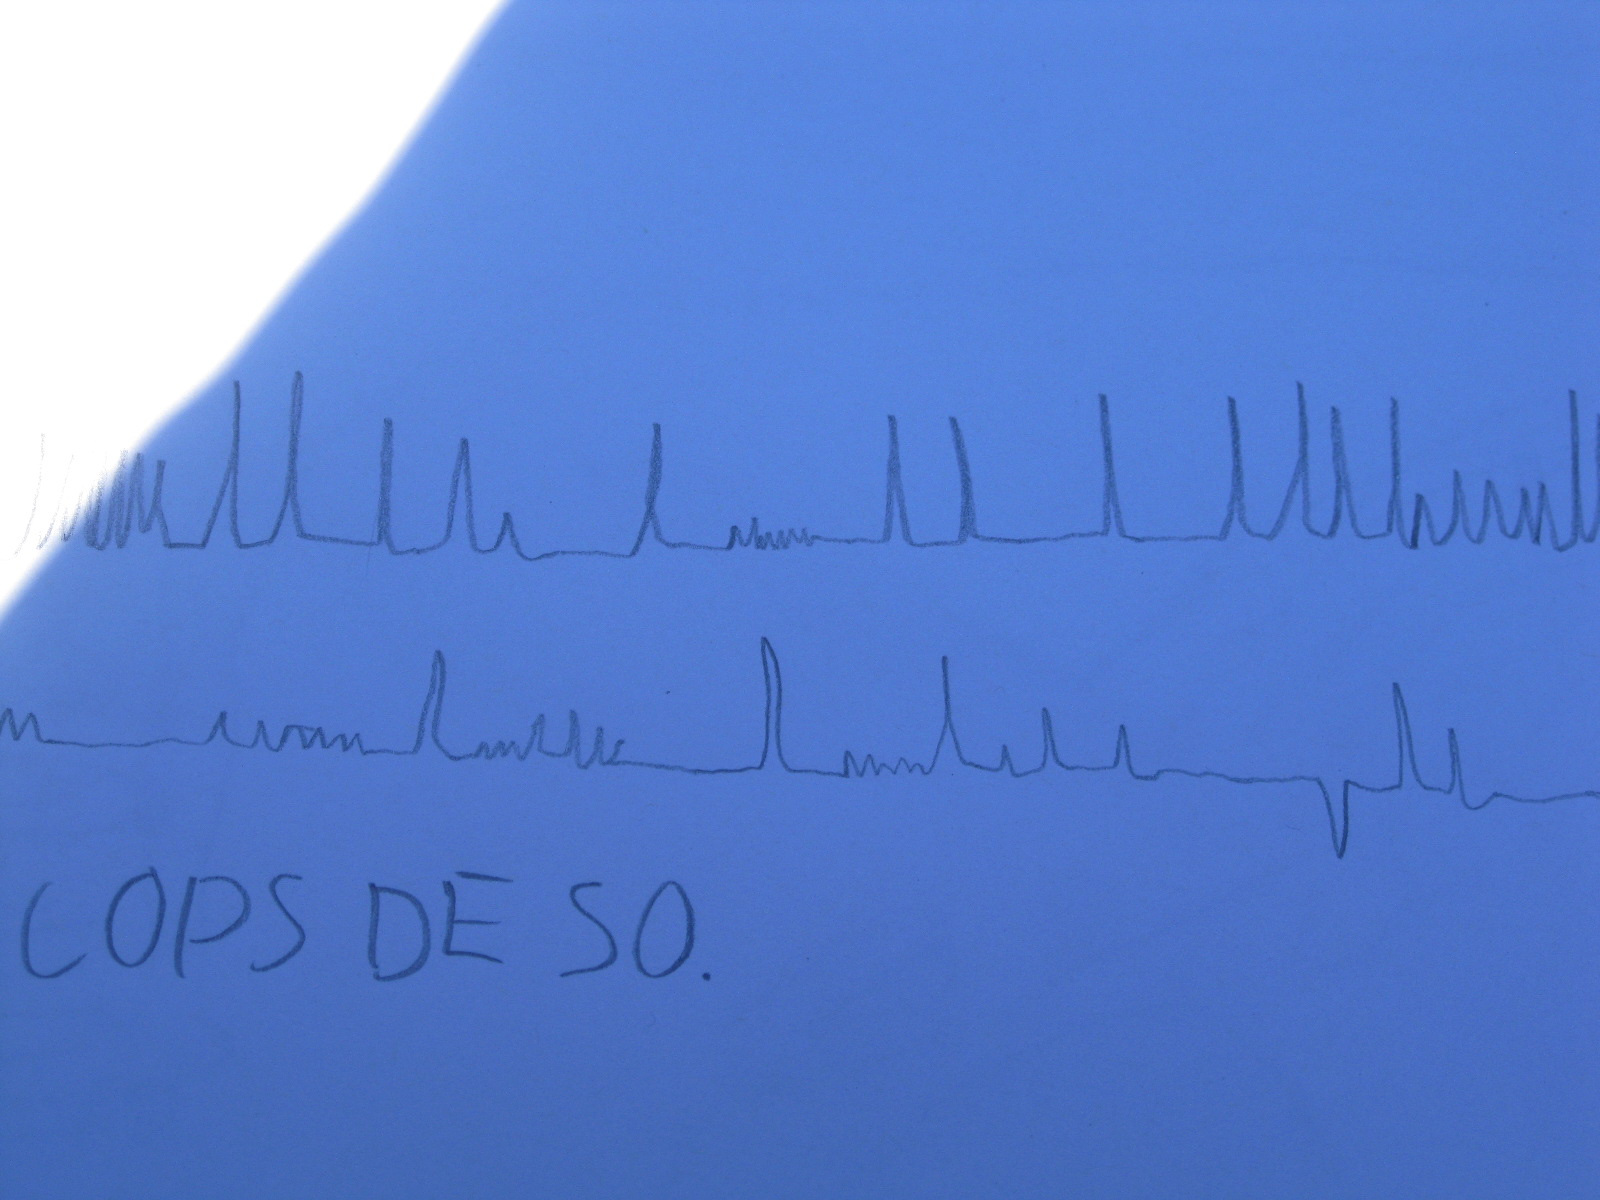 COPS DE SO.